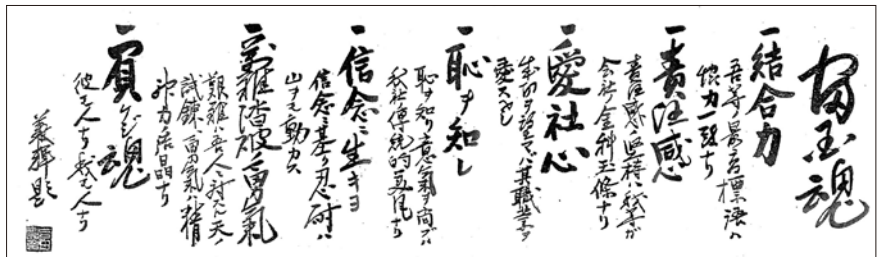 富国魂
一結合力
吾等ノ最高標語ハ
協力一致ナリ
一責任感
責任感ノ堅持ハ我等ガ
会社ノ金科玉條ナリ
一愛社心
成功ヲ望マバ其職業ヲ
愛スベシ
一恥ヲ知レ
恥ヲ知リ意氣ヲ尚ブハ
我社傳統的美風ナリ
一信念ニ生キヨ
信念ニ基ク忍耐ハ
山ヲモ動カス
一萬難踏破ノ勇氣
艱難ハ吾人ニ対スル天ノ
試錬 勇氣ハ精
神力ノ結晶ナリ
一負ケジ魂
彼モ人ナリ我モ人ナリ
義輝題